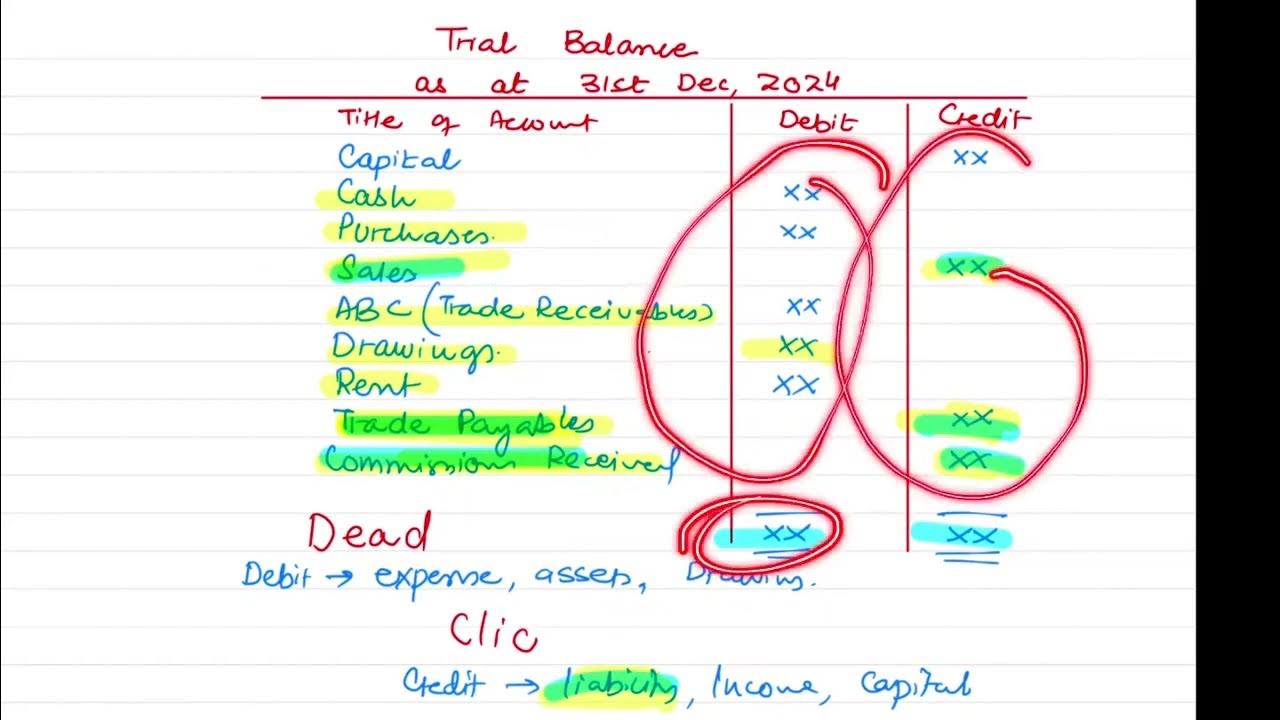 Trial Balance
as at 31st Dec, 2024
Title of Account Debit Credit
Capital xx
Cash xx
Purchases. xx
Sales xx
ABC (Trade Receivables) xx
Drawings. xx
Rent xx
Trade Payables xx
Commission Received xx
xx xx
Dead
Debit → expense, assets, Drawings.
Clic
Credit → liability, Income, Capital